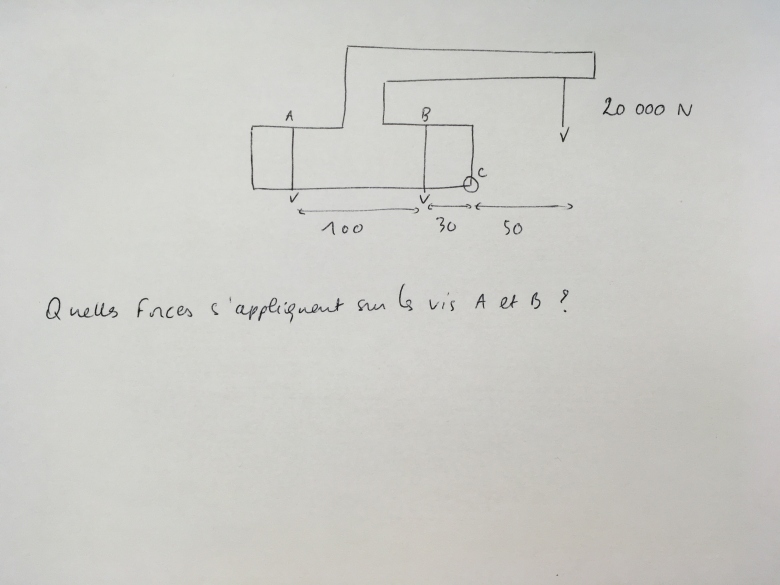 A
B
20 000 N
C
100
30
50
Quelles forces s'appliquent sur les vis A et B ?